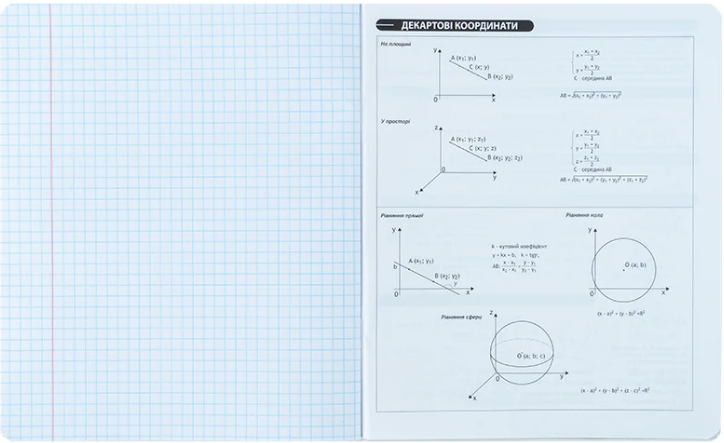 ДЕКАРТОВІ КООРДИНАТИ
На площині
y
A (x₁; y₁)
C (x; y)
B (x₂; y₂)
0
x
x = (x₁ + x₂)/2
y = (y₁ + y₂)/2
C - середина AB
AB = √(x₁ + x₂)² + (y₁ + y₂)²
У просторі
z
A (x₁; y₁; z₁)
C (x; y; z)
B (x₂; y₂; z₂)
0
y
x
x = (x₁ + x₂)/2
y = (y₁ + y₂)/2
z = (z₁ + z₂)/2
C - середина AB
AB = √(x₁ + x₂)² + (y₁ + y₂)² + (z₁ + z₂)²
Рівняння прямої
y
b
A (x₁; y₁)
B (x₂; y₂)
γ
0
x
k - кутовий коефіцієнт
y = kx + b, k = tgγ,
AB: (x - x₁)/(x₂ - x₁) = (y - y₁)/(y₂ - y₁)
Рівняння кола
y
O (a; b)
0
x
(x - a)² + (y - b)² =R²
Рівняння сфери
z
O (a; b; c)
0
y
x
(x - a)² + (y - b)² + (z - c)² =R²